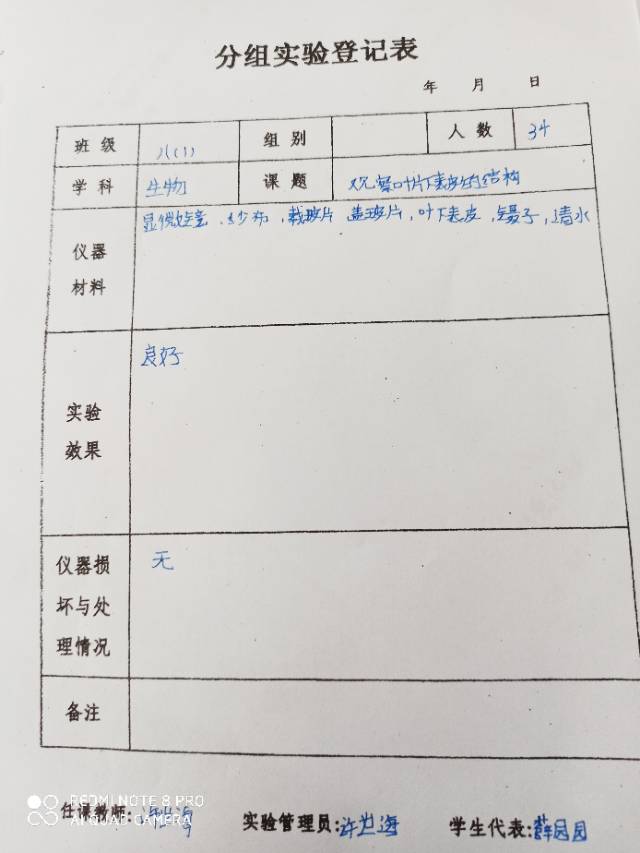 分组实验登记表
年 月 日
班级 八(1) 组别 人数 34
学科 生物 课题 观察叶片下表皮的结构
仪器材料 显微镜、纱布、载玻片 盖玻片，叶下表皮，镊子，清水
实验效果 良好
仪器损坏与处理情况 无
备注
任课教师: 实验管理员:许世海 学生代表:薛园园
REDMI NOTE 8 PRO
AI QUAD CAMERA